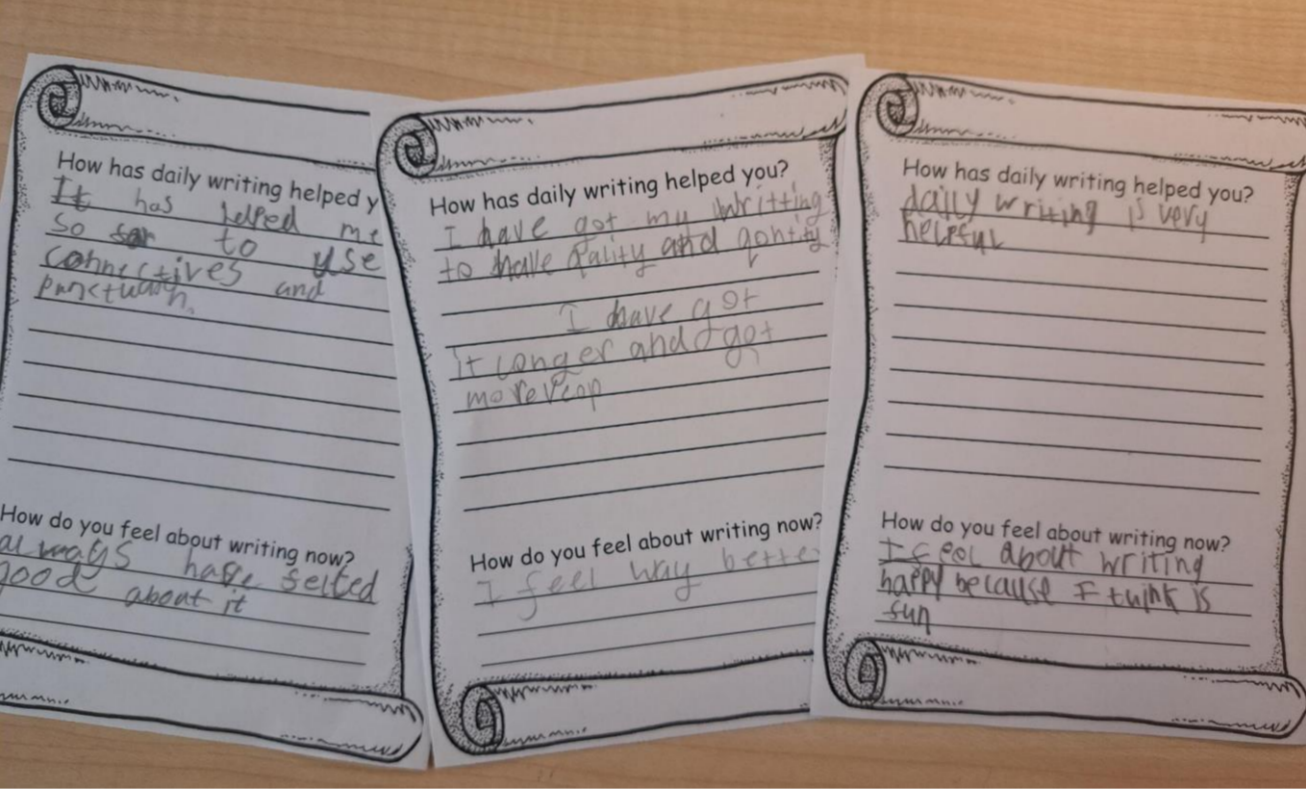 How has daily writing helped y
It has helped me
so far to use
connectives and
How do you feel about writing now?
always have felted
good about it
How has daily writing helped you?
I have got my writting
to have qality and qontity
I have got
it longer and got
more
How do you feel about writing now?
I feel way better
How has daily writing helped you?
daily writing is very
helpful
How do you feel about writing now?
I feel about writing
happy because I twink is
fun